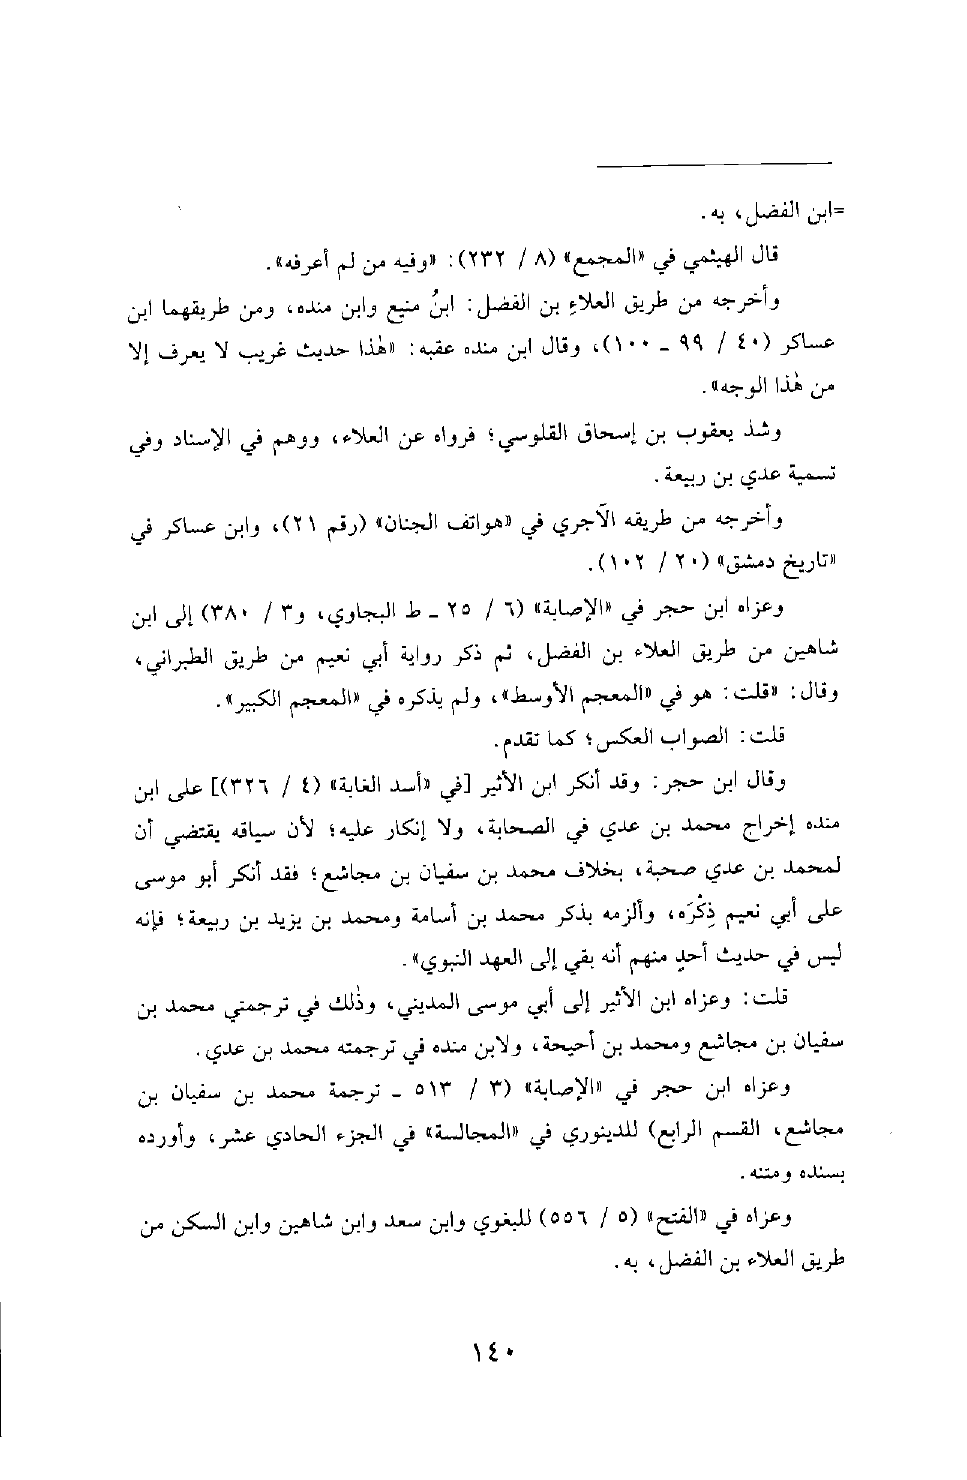 =ابن الفضل، به.
قال الهيثمي في «المجمع» (٨ / ٢٣٢): «وفيه من لم أعرفه».
وأخرجه من طريق العلاءِ بن الفضل: ابنُ منيع وابن منده، ومن طريقهما ابن
عساكر (٤٠ / ٩٩ ـ ١٠٠)، وقال ابن منده عقبه: «هٰذا حديث غريب لا يعرف إلا
من هٰذا الوجه».
وشذ يعقوب بن إسحاق القلوسي؛ فرواه عن العلاء، ووهم في الإسناد وفي
تسمية عدي بن ربيعة.
وأخرجه من طريقه الآجري في «هواتف الجنان» (رقم ٢١)، وابن عساكر في
«تاريخ دمشق» (٢٠ / ١٠٢).
وعزاه ابن حجر في «الإصابة» (٦ / ٢٥ ـ ط البجاوي، و٣ / ٣٨٠) إلى ابن
شاهين من طريق العلاء بن الفضل، ثم ذكر رواية أبي نعيم من طريق الطبراني،
وقال: «قلت: هو في «المعجم الأوسط»، ولم يذكره في «المعجم الكبير».
قلت: الصواب العكس؛ كما تقدم.
وقال ابن حجر: وقد أنكر ابن الأثير [في «أسد الغابة» (٤ / ٣٢٦)] على ابن
منده إخراج محمد بن عدي في الصحابة، ولا إنكار عليه؛ لأن سياقه يقتضي أن
لمحمد بن عدي صحبة، بخلاف محمد بن سفيان بن مجاشع؛ فقد أنكر أبو موسى
على أبي نعيم ذِكْرَه، وألزمه بذكر محمد بن أسامة ومحمد بن يزيد بن ربيعة؛ فإنه
ليس في حديث أحدٍ منهم أنه بقي إلى العهد النبوي».
قلت: وعزاه ابن الأثير إلى أبي موسى المديني، وذٰلك في ترجمتي محمد بن
سفيان بن مجاشع ومحمد بن أحيحة، ولابن منده في ترجمته محمد بن عدي.
وعزاه ابن حجر في «الإصابة» (٣ / ٥١٣ ـ ترجمة محمد بن سفيان بن
مجاشع، القسم الرابع) للدينوري في «المجالسة» في الجزء الحادي عشر، وأورده
بسنده ومتنه.
وعزاه في «الفتح» (٥ / ٥٥٦) للبغوي وابن سعد وابن شاهين وابن السكن من
طريق العلاء بن الفضل، به.
١٤٠